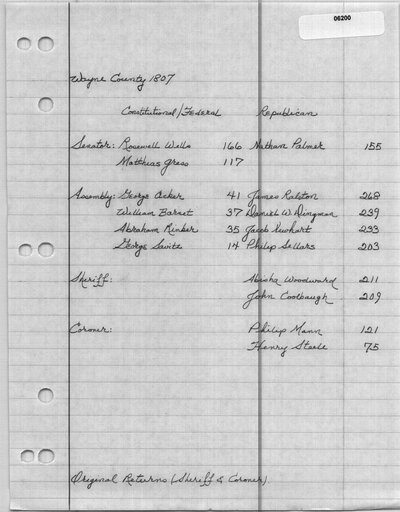 06200
Wayne County 1807
Constitutional/Federal Republican
Senator: Rosewell Wells 166 Nathan Palmer 155
Matthias Gress 117
Assembly: George Acker 41 James Ralston 268
William Barnet 37 Daniel W. Dingman 239
Abraham Rinker 35 Jacob Newhart 233
George Savitz 14 Philip Sellars 203
Sheriff: Abisha Woodward 211
John Coolbaugh 209
Coroner: Philip Mann 121
Henry Steele 75
Original Returns (Sheriff & Coroner)